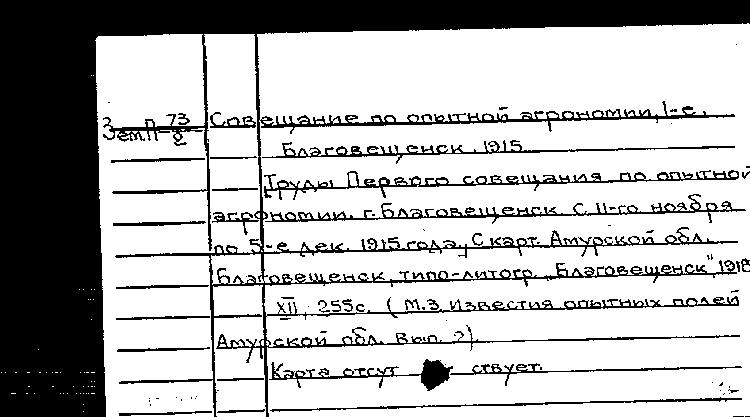 Зем П 73/8 Совещание по опытной агрономии, I-е.
Благовещенск. 1915
Труды Первого совещания по опытной
агрономии. г. Благовещенск с 11-го ноября
по 5-е дек. 1915 года, с карт. Амурской обл.
Благовещенск, типо-литогр. „Благовещенск", 1918
XII, 255с. (М.З. Известия опытных полей
Амурской обл. Вып. 2).
Карта отсут ствует.